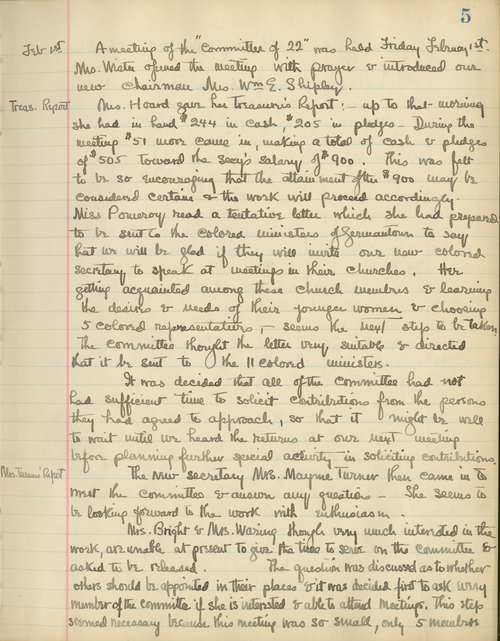 5
Feb 1st A meeting of the "Committee of 22" was held Friday February 1st.
Mrs. Wister opened the meeting with prayer & introduced our
new Chairman Mrs. Wm E. Shipley.
Treas. Report Mrs. Hoard gave her Treasurer's Report:- up to that morning
she had in hand $244 in cash, $205 in pledges - During the
meeting $51 more came in, making a total of cash & pledges
of $505 toward the Secy's salary of $900. This was felt
to be so encouraging that the attainment of the $900 may be
considered certain & the work will proceed accordingly.
Miss Pomeroy read a tentative letter which she had prepared
to be sent to the colored ministers of Germantown to say
that we will be glad if they will invite our new colored
secretary to speak at meetings in their churches. Her
getting acquainted among these church members & learning
the desires & needs of their younger women & choosing
5 colored representatives, - seems the next step to be taken.
The committee thought the letter very suitable & directed
that it be sent to the 11 colored ministers.
It was decided that all of the committee had not
had sufficient time to solicit contributions from the persons
they had agreed to approach, so that it might be well
to wait until we heard the returns at our next meeting
before planning further special activity in soliciting contributions.
Mrs. Turner's Report The new secretary Mrs. Mayne Turner then came in to
meet the committee & answer any questions - She seems to
be looking forward to the work with enthusiasm.
Mrs. Bright & Mrs. Waring though very much interested in the
work, are unable at present to give the time to serve on the committee &
asked to be released. The question was discussed as to whether
others should be appointed in their places & it was decided first to ask every
member of the committee if she is interested & able to attend meetings. This step
seemed necessary because this meeting was so small, only 5 members